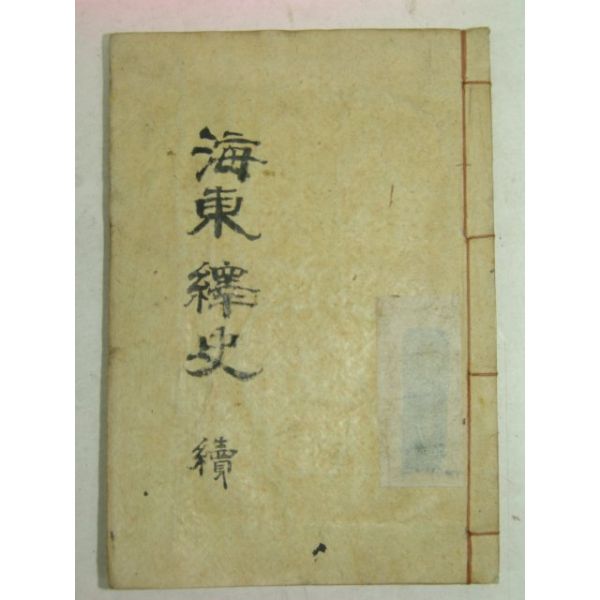 海東繹史
續